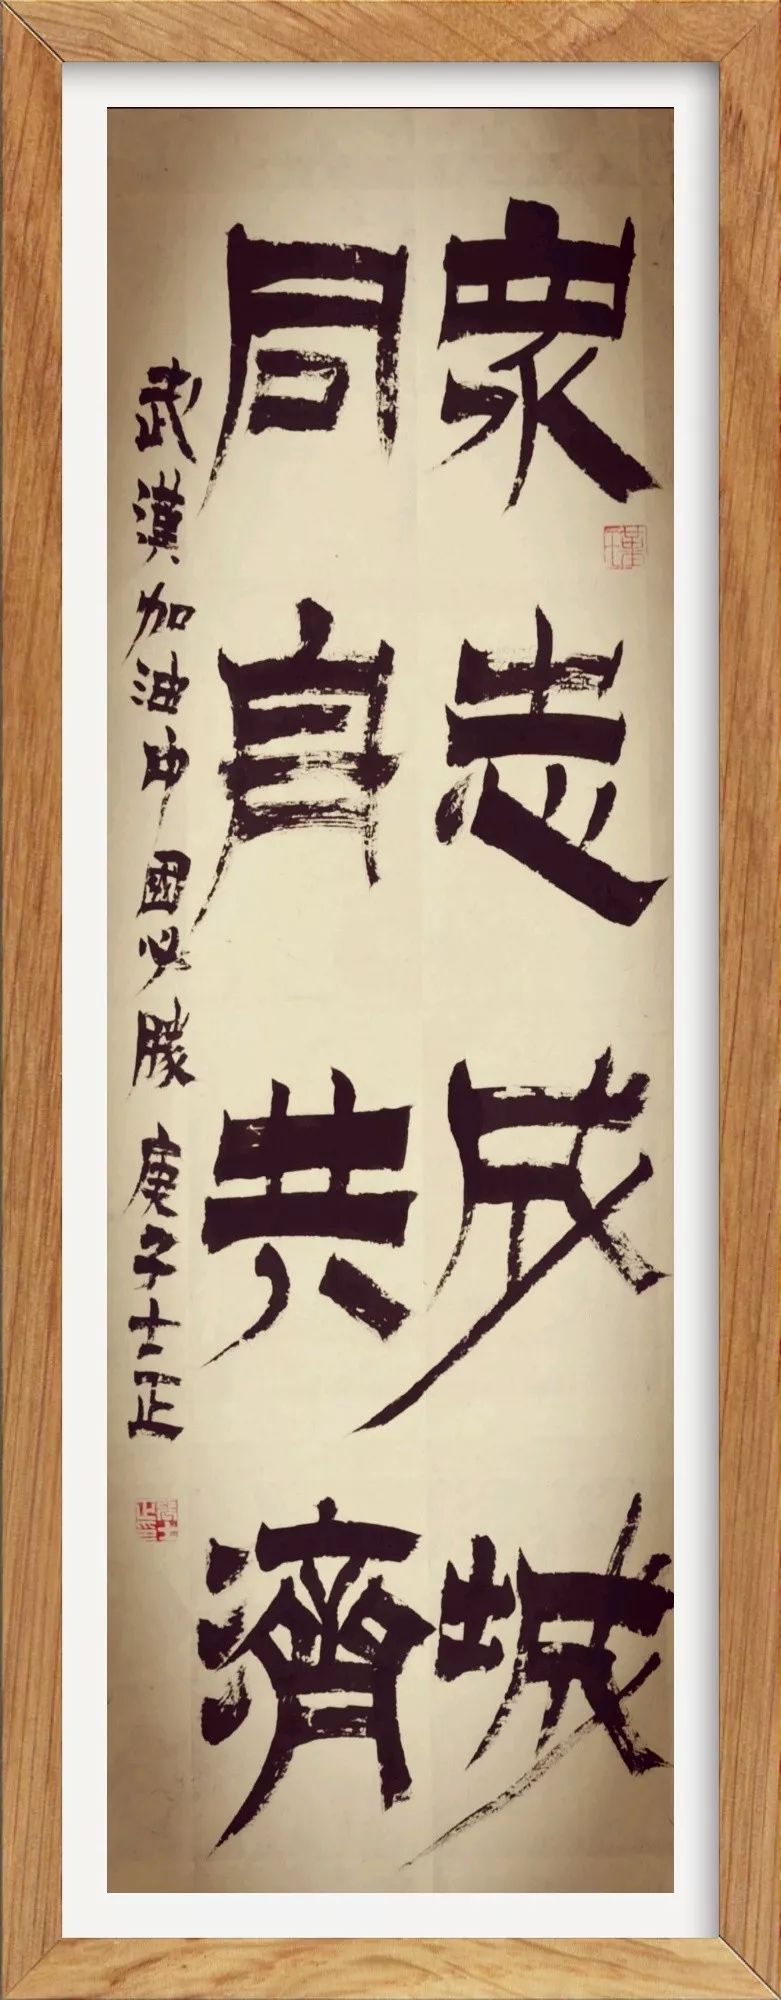 眾志成城
同舟共濟
武漢加油中國必勝 庚子士正